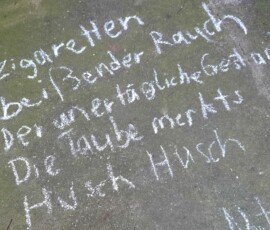 Zigaretten
beißender Rauch
Der unerträgliche Gestan
Die Taube merkts
Husch Husch